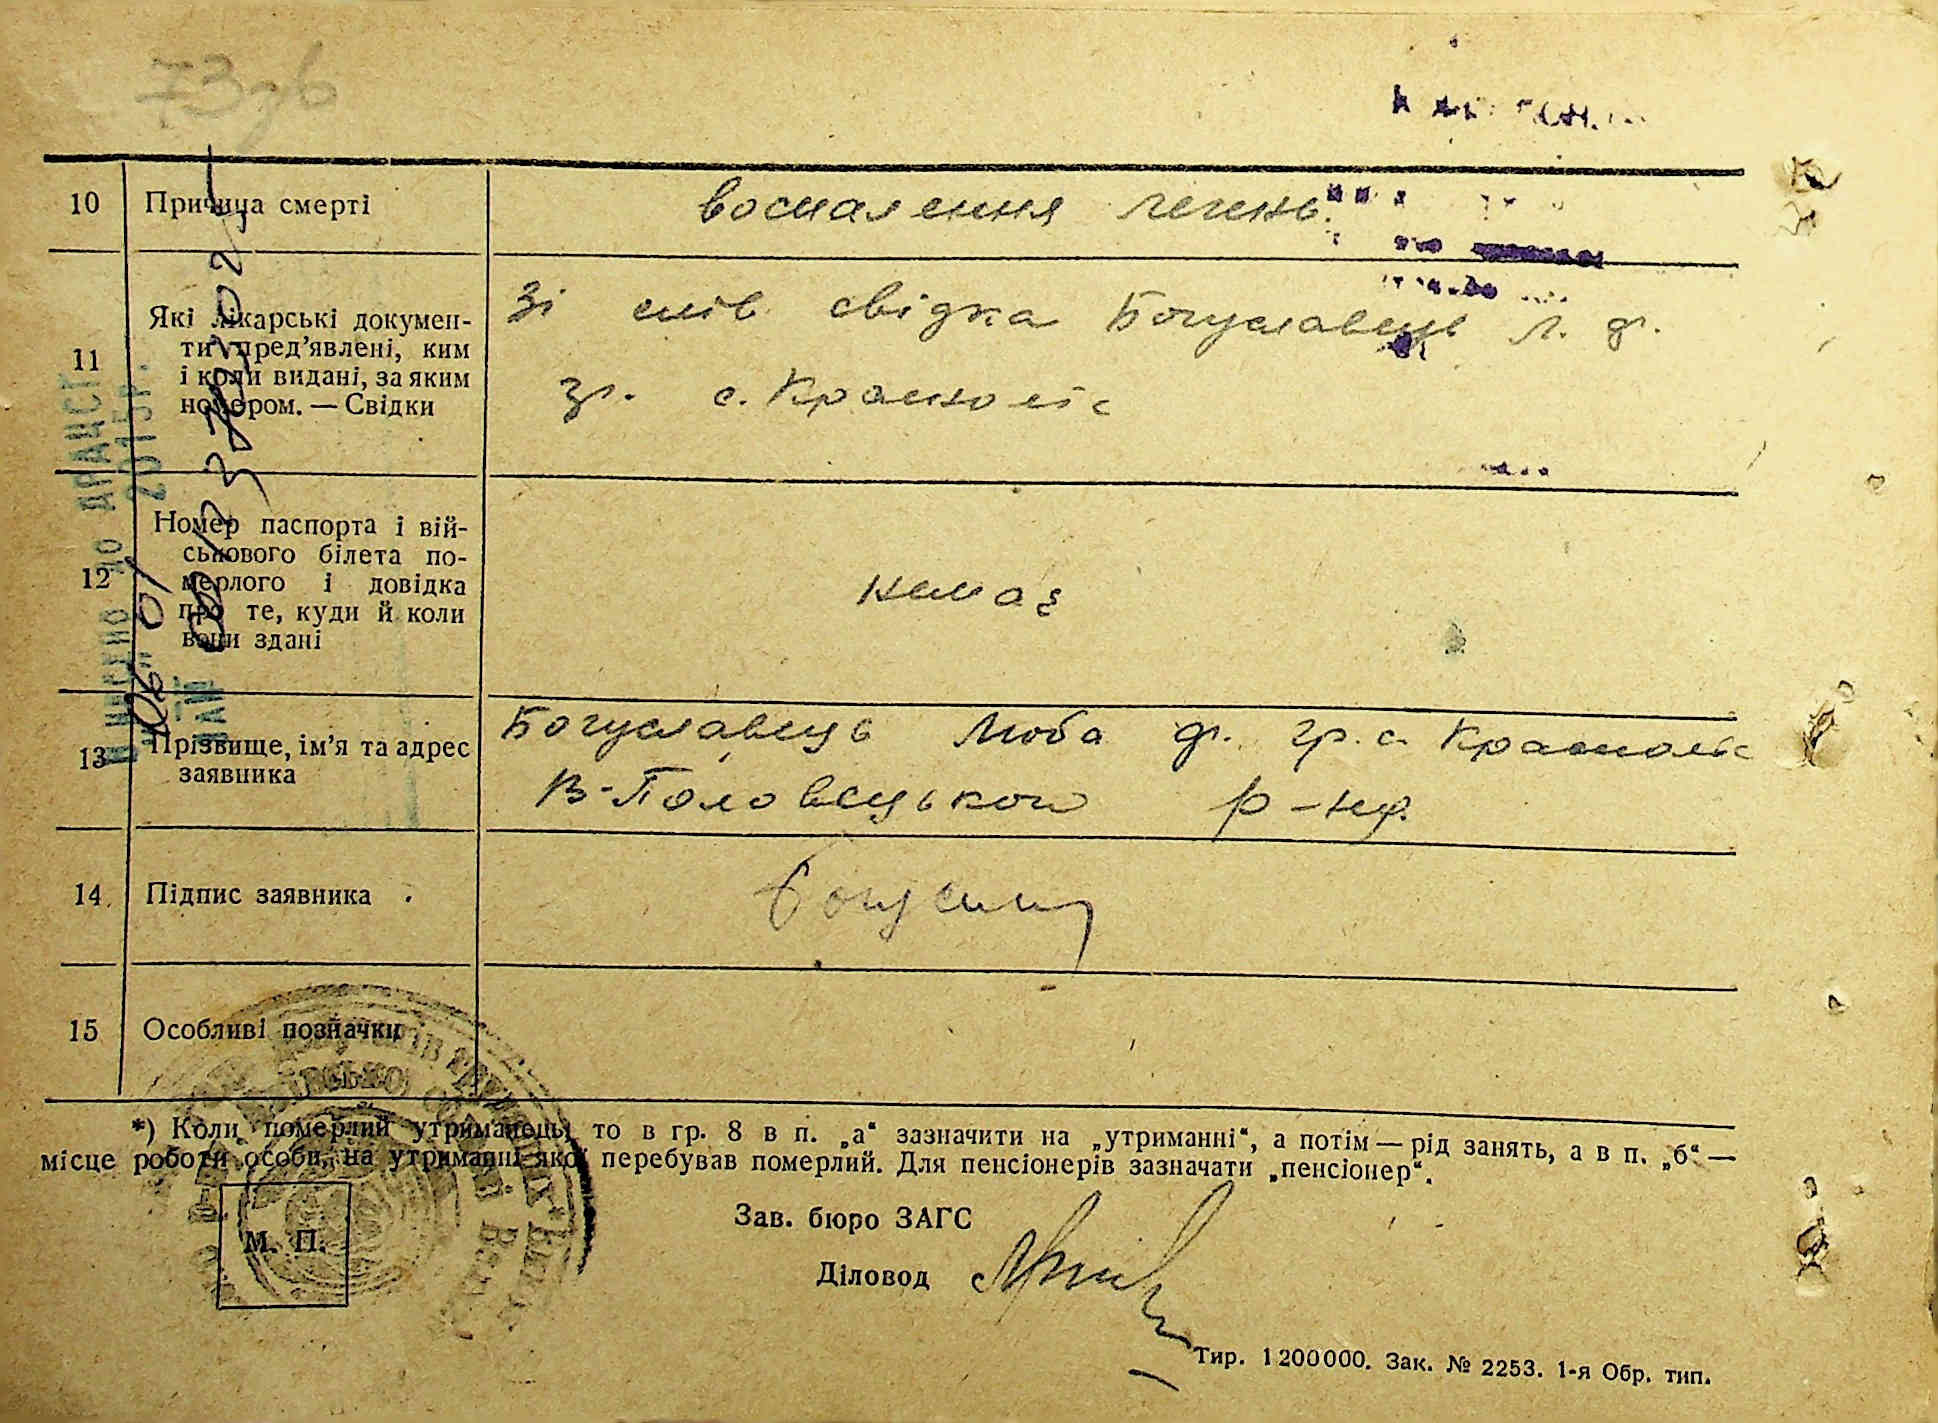 73зв
10 Причина смерті воспалення легень.
11 Які лікарські документи пред'явлені, ким і коли видані, за яким номером. — Свідки
Зі слів свідка Богуславець Л. Ф.
гр. с. Красноліс
12 Номер паспорта і військового білета померлого і довідка про те, куди й коли вони здані
немає
13 Прізвище, ім'я та адрес заявника
Богуславець Люба Ф. гр. с. Красноліс
В-Половецького р-ну.
14 Підпис заявника
15 Особливі позначки
*) Коли померлий утриманець, то в гр. 8 в п. „а“ зазначити на „утриманні“, а потім — рід занять, а в п. „б“ —
місце роботи особи, на утриманні якої перебував померлий. Для пенсіонерів зазначати „пенсіонер“.
М. П.
Зав. бюро ЗАГС
Діловод
Тир. 1200000. Зак. № 2253. 1-я Обр. тип.